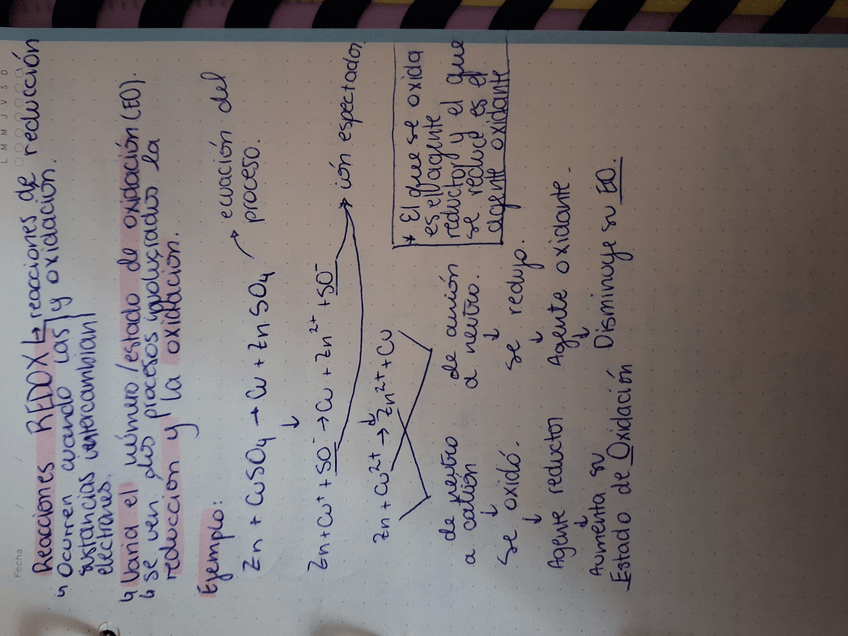 Fecha
L M M J V S D
Reacciones REDOX ↳ reacciones de reducción
y oxidación.
↳ Ocurren cuando las
sustancias intercambian
electrones.
↳ Varia el número/estado de oxidación (EO).
↳ se ven dos procesos involucrados la
reducción y la oxidación.
Ejemplo:
Zn + CuSO₄ → Cu + ZnSO₄ → ecuación del
proceso.
↓
Zn + Cu⁺ + SO⁻ → Cu + Zn²⁺ + SO⁻ → ión espectador
Zn + Cu²⁺ → Zn²⁺ + Cu
* El que se oxida
es el agente
reductor y el que
se reduce es el
agente oxidante
de neutro de anión
a catión a neutro.
↓ ↓
Se oxidó. se redujo.
↓ ↓
Agente reductor Agente oxidante.
↓ ↓
Aumenta su Disminuye su EO.
Estado de Oxidación